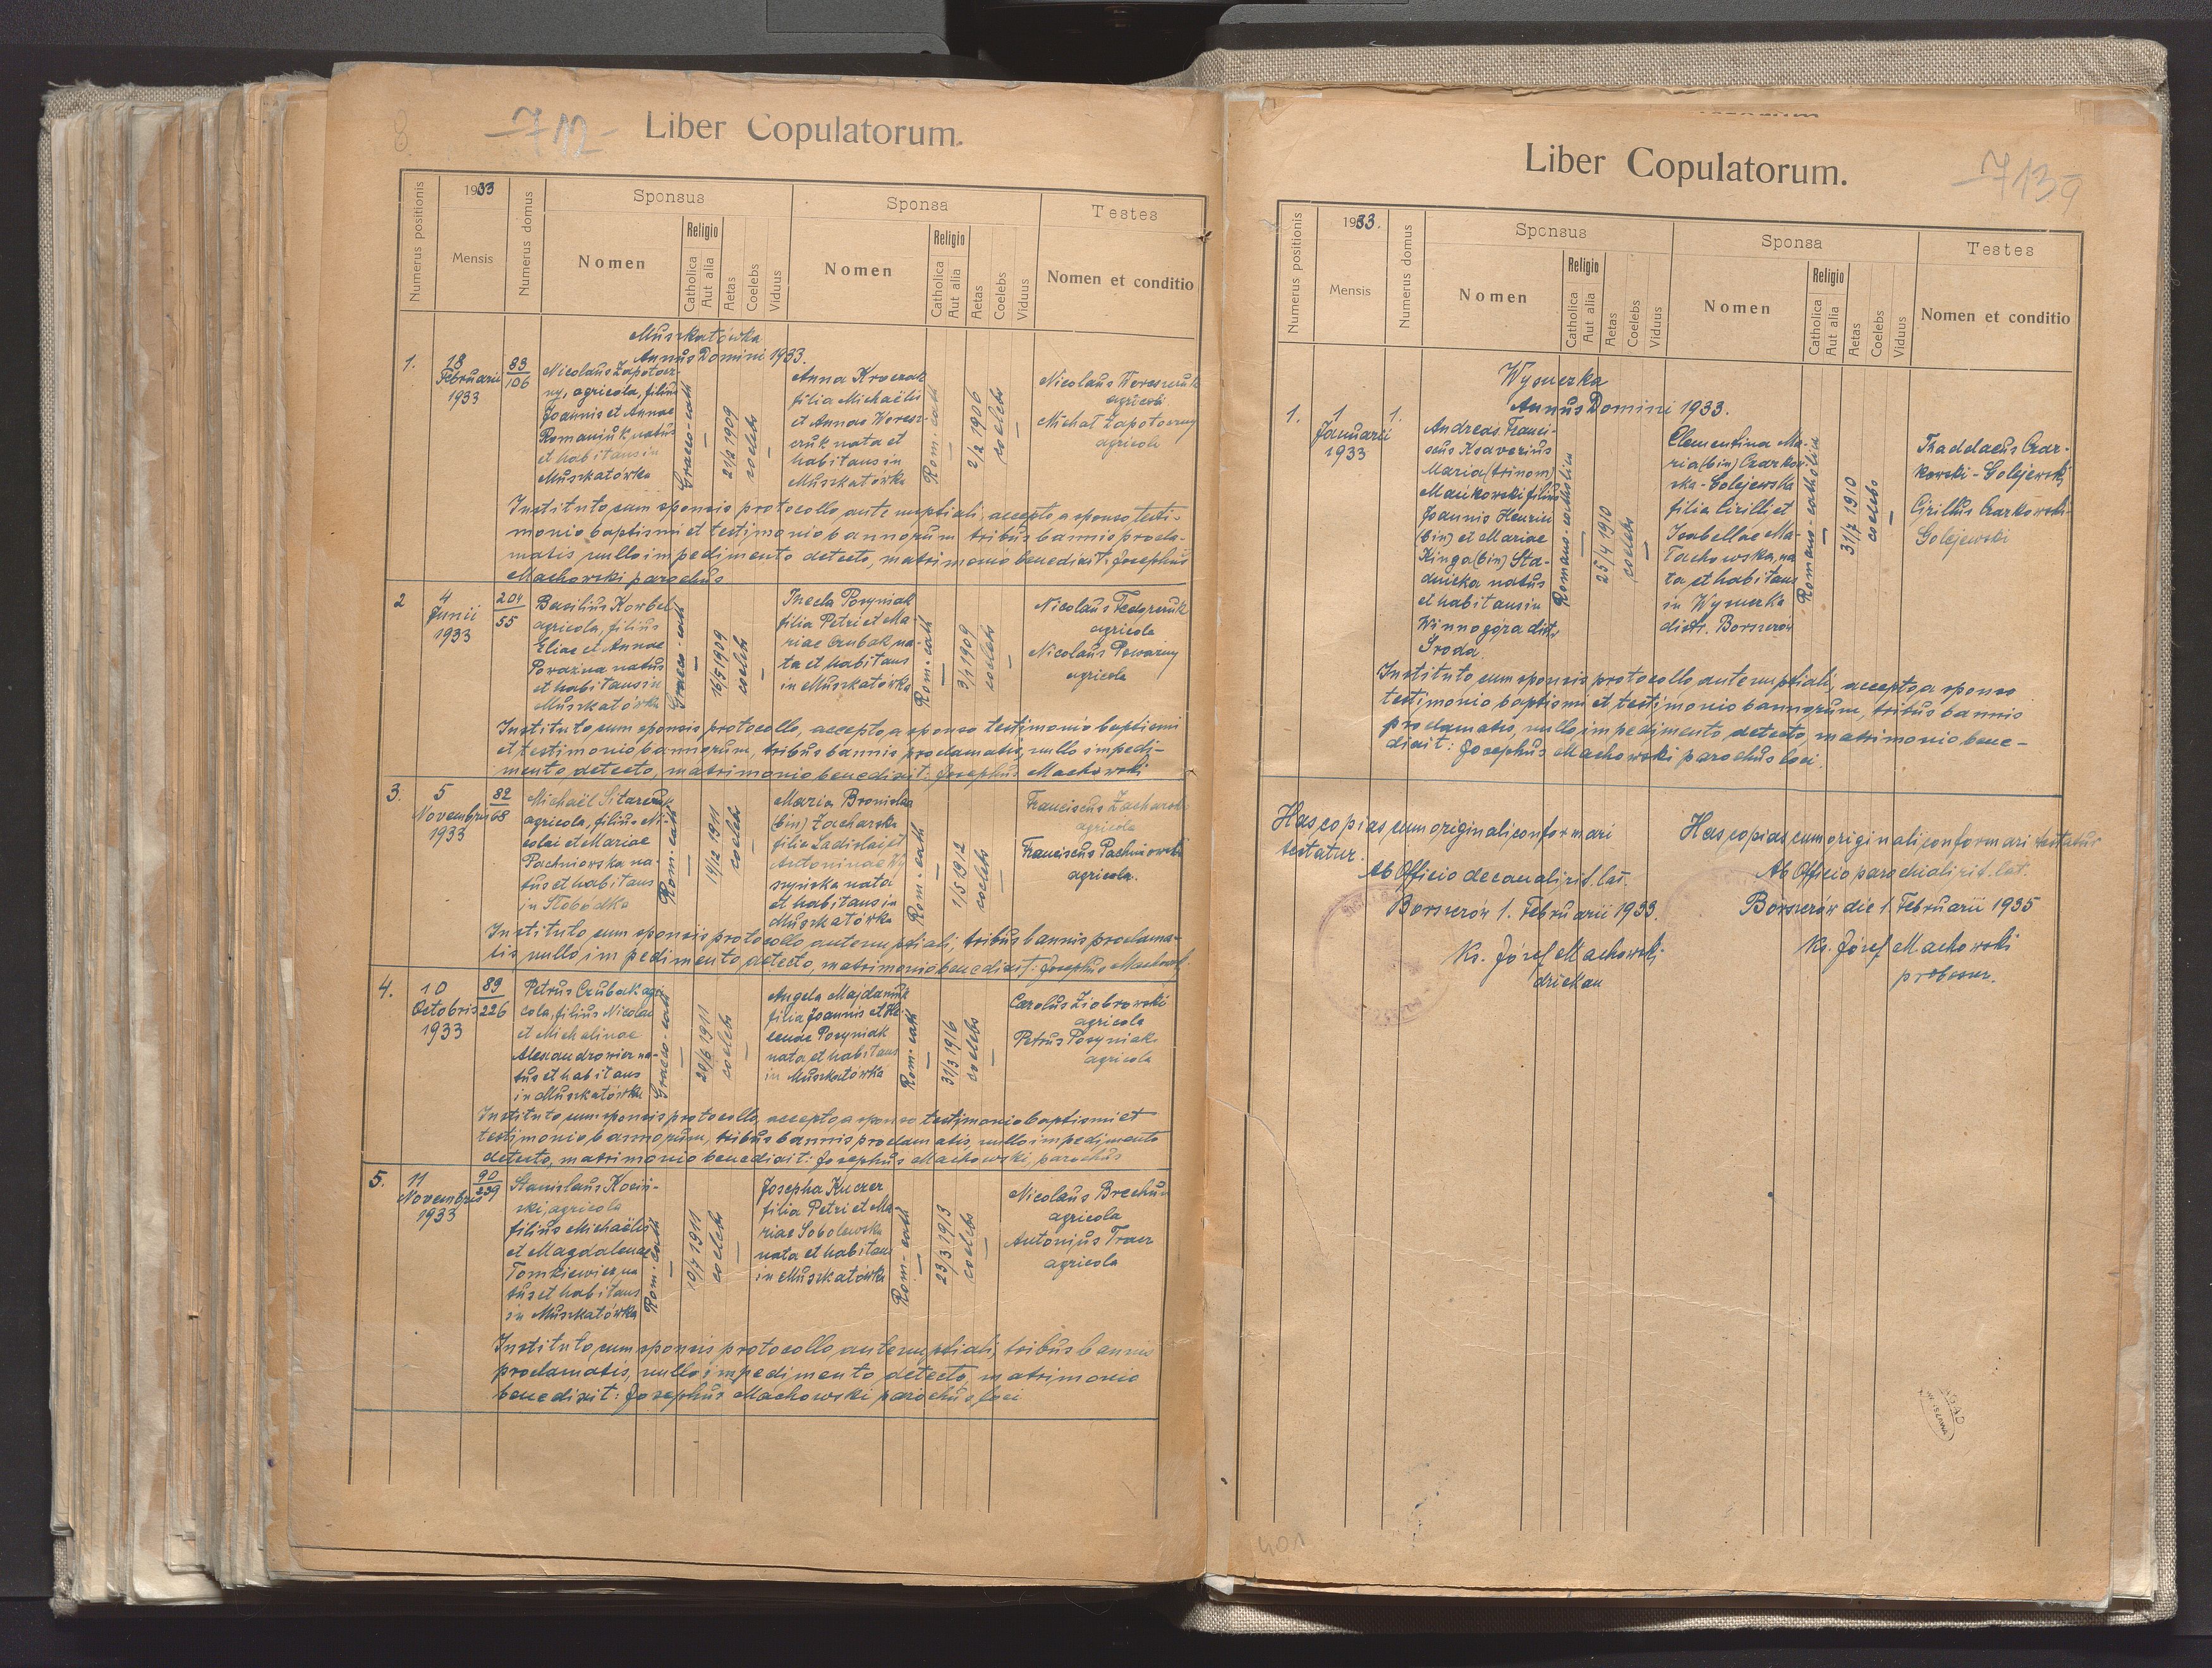 8
712
Liber Copulatorum.
Numerus positionis
1933
Mensis
Numerus domus
Sponsus
Nomen
Religio
Catholica
Aut alia
Aetas
Coelebs
Viduus
Sponsa
Nomen
Religio
Catholica
Aut alia
Aetas
Coelebs
Viduus
Testes
Nomen et conditio
Muszkatówka
Annus Domini 1933.
1.
18
Februarii
1933
83
106
Nicolaus Zapotocz-
ny, agricola, filius
Joannis et Annae
Romaniuk natus
et habitans in
Muszkatówka
Graeco-cath
21/2 1909
coelebs
Anna Kroczak
filia Michaëlis
et Annae Woresz-
czuk nata et
habitans in
Muszkatówka
Rom.-cath
2/2 1906
coelebs
Nicolaus Woreszczuk
agricola
Michał Zapotoczny
agricola
Instituto cum sponsis protocollo ante nuptiali, accepto a sponso testi-
monio baptismi et testimonio bannorum tribus bannis procla-
matis nullo impedimento detecto, matrimonio benedixit: Josephus
Machowski parochus
2
4
Junii
1933
204
55
Basilius Korbel
agricola, filius
Eliae et Annae
Poważna natus
et habitans in
Muszkatówka
Graeco-cath
16/5 1909
coelebs
Posyniak
filia Petri et Ma-
riae Czubak na-
ta et habitans
in Muszkatówka
Rom.-cath
3/1 1909
coelebs
Nicolaus Fedorczuk
agricola
Nicolaus Poważny
agricola
Instituto cum sponsis protocollo, accepto a sponso testimonio baptismi
et testimonio bannorum, tribus bannis proclamatis, nullo impedi-
mento detecto, matrimonio benedixit: Josephus Machowski
3.
5
Novembris
1933
82
68
Michaël Sitarczuk
agricola, filius Ni-
colai et Mariae
Pachniowska na-
tus et habitans
in Słobódka
Rom.-cath
14/12 1911
coelebs
Maria Bronisłava
(bin) Zacharska
filia Ladislai et
Antoninae
nata
et habitans in
Muszkatówka
Rom.-cath
1/5 1912
coelebs
Franciscus Zacharski
agricola
Franciscus Pachniowski
agricola.
Instituto cum sponsis protocollo antenuptiali, tribus bannis proclama-
tis, nullo impedimento detecto, matrimonio benedixit: Josephus Machowski
4.
10
Octobris
1933
89
226
Petrus Czubak agri-
cola, filius Nicolai
et Michalinae
Alexandrowicz na-
tus et habitans
in Muszkatówka
Graeco-cath
20/6 1911
coelebs
Angela Majdaniuk
filia Joannis et He-
lenae Posyniak
nata et habitans
in Muszkatówka
Rom.-cath
31/3 1916
coelebs
Carolus Ziobrowski
agricola
Petrus Posyniak
agricola
Instituto cum sponsis protocollo, accepto a sponso testimonio baptismi et
testimonio bannorum, tribus bannis proclamatis, nullo impedimento
detecto, matrimonio benedixit: Josephus Machowski, parochus
5.
11
Novembris
1933
90
239
Stanislaus Kosiń-
ski, agricola
filius Michaëlis
et Magdalenae
Tomkiewicz, na
tus et habitans
in Muszkatówka
Rom.-cath
10/7 1911
coelebs
Josepha Kuczer
filia Petri et Ma
riae Sobolewska
nata et habitans
in Muszkatówka
Rom.-cath
23/3 1913
coelebs
Nicolaus Brechun
agricola
Antonius Tracz
agricola
Instituto cum sponsis protocollo antenuptiali, tribus bannis
proclamatis, nullo impedimento detecto, matrimonio
benedixit: Josephus Machowski parochus loci
Liber Copulatorum.
713
9
Numerus positionis
1933.
Mensis
Numerus domus
Sponsus
Nomen
Religio
Catholica
Aut alia
Aetas
Coelebs
Viduus
Sponsa
Nomen
Religio
Catholica
Aut alia
Aetas
Coelebs
Viduus
Testes
Nomen et conditio
Wysuczka
Annus Domini 1933.
1.
1
Januarii
1933
1.
Andreas Franci-
scus Ksaverius
Maria (trinom)
Mańkowski filius
Joannis Henrici
(bin) et Mariae
Kinga (bin) Sta-
dnicka natus
et habitans in
Winnogóra distr.
Środa.
Romano-catholica
25/4 1910
coelebs
Clementina Ma-
ria (bin) Czarkow-
ska-Golejewska
filia Cirilli et
Isabellae Ma-
łachowska, na
ta et habitans
in Wysuczka
distr. Borszczów
Romano-catholica
31/7 1910
coelebs
Thaddaeus Czar-
kowski-Golejewski
Cirillus Czarkowski-
Golejewski
Instituto cum sponsis protocollo antenuptiali, accepto a sponso
testimonio baptismi et testimonio bannorum, tribus bannis
proclamatis, nullo impedimento detecto matrimonio bene-
dixit: Josephus Machowski parochus loci.
Has copias cum originali conformari
testatur.
Ab Officio decanali rit. lat.
Borszczów 1. Februarii 1933.
Ks. Józef Machowski
dziekan
Has copias cum originali conformari testatur
Ab Officio parochiali rit. lat.
Borszczów die 1. Februarii 1935
Ks. Józef Machowski
proboszcz.
AGAD
WARSZAWA
401